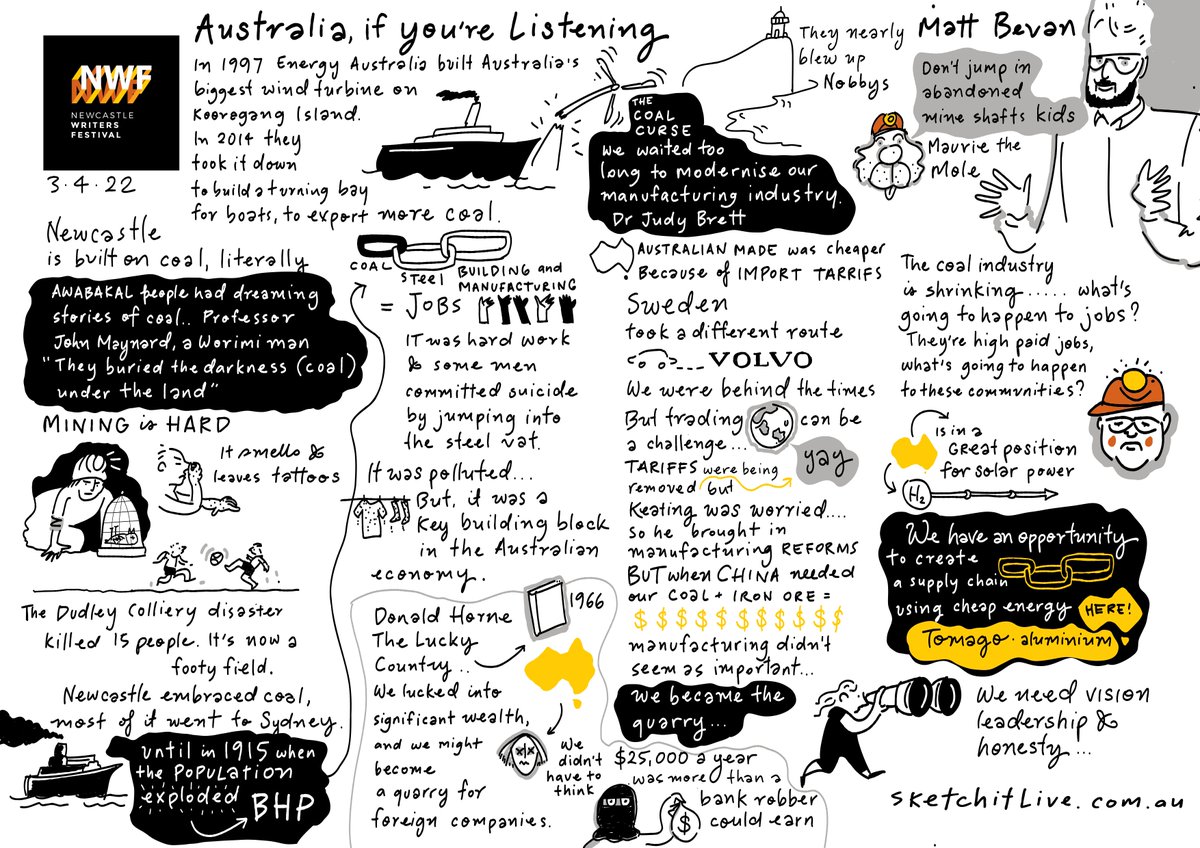 NWF
NEWCASTLE
WRITERS
FESTIVAL
3.4.22
Australia, if you're Listening
In 1997 Energy Australia built Australia's
biggest wind turbine on
Kooragang Island.
In 2014 they
took it down
to build a turning bay
for boats, to export more coal.
They nearly
blew up
Nobbys
Matt Bevan
Don't jump in
abandoned
mine shafts kids
Maurie the
Mole
THE
COAL
CURSE
We waited too
long to modernise our
manufacturing industry.
Dr Judy Brett
Newcastle
is built on coal, literally
AWABAKAL people had dreaming
stories of coal.. Professor
John Maynard, a Worimi man
"They buried the darkness (coal)
under the land"
MINING is HARD
It smells &
leaves tattoos
The Dudley Colliery disaster
killed 15 people. It's now a
footy field.
Newcastle embraced coal,
most of it went to Sydney.
until in 1915 when
the POPULATION
exploded
BHP
COAL
STEEL
BUILDING and
MANUFACTURING
= JOBS
IT was hard work
& some men
committed suicide
by jumping into
the steel vat.
It was polluted...
But, it was a
Key building block
in the Australian
economy.
Donald Horne
The Lucky
Country..
1966
We lucked into
significant wealth,
and we might
become
a quarry for
foreign companies.
We
didn't
have to
think
AUSTRALIAN MADE was cheaper
Because of IMPORT TARRIFS
Sweden
took a different route
VOLVO
We were behind the times
But trading can be
a challenge...
TARIFFS were being
removed but
yay
Keating was worried....
So he brought in
manufacturing REFORMS
BUT when CHINA needed
our COAL + IRON ORE =
$ $ $ $ $ $ $ $ $ $ $
manufacturing didn't
seem as important...
We became the
quarry...
$25,000 a year
was more than a
bank robber
could earn
$
The coal industry
is shrinking..... what's
going to happen to jobs?
They're high paid jobs,
what's going to happen
to these communities?
is in a
Great position
for solar power
H2
We have an opportunity
to create
a supply chain
using cheap energy HERE!
Tomago. aluminium
We need vision
leadership &
honesty...
sketchitlive.com.au